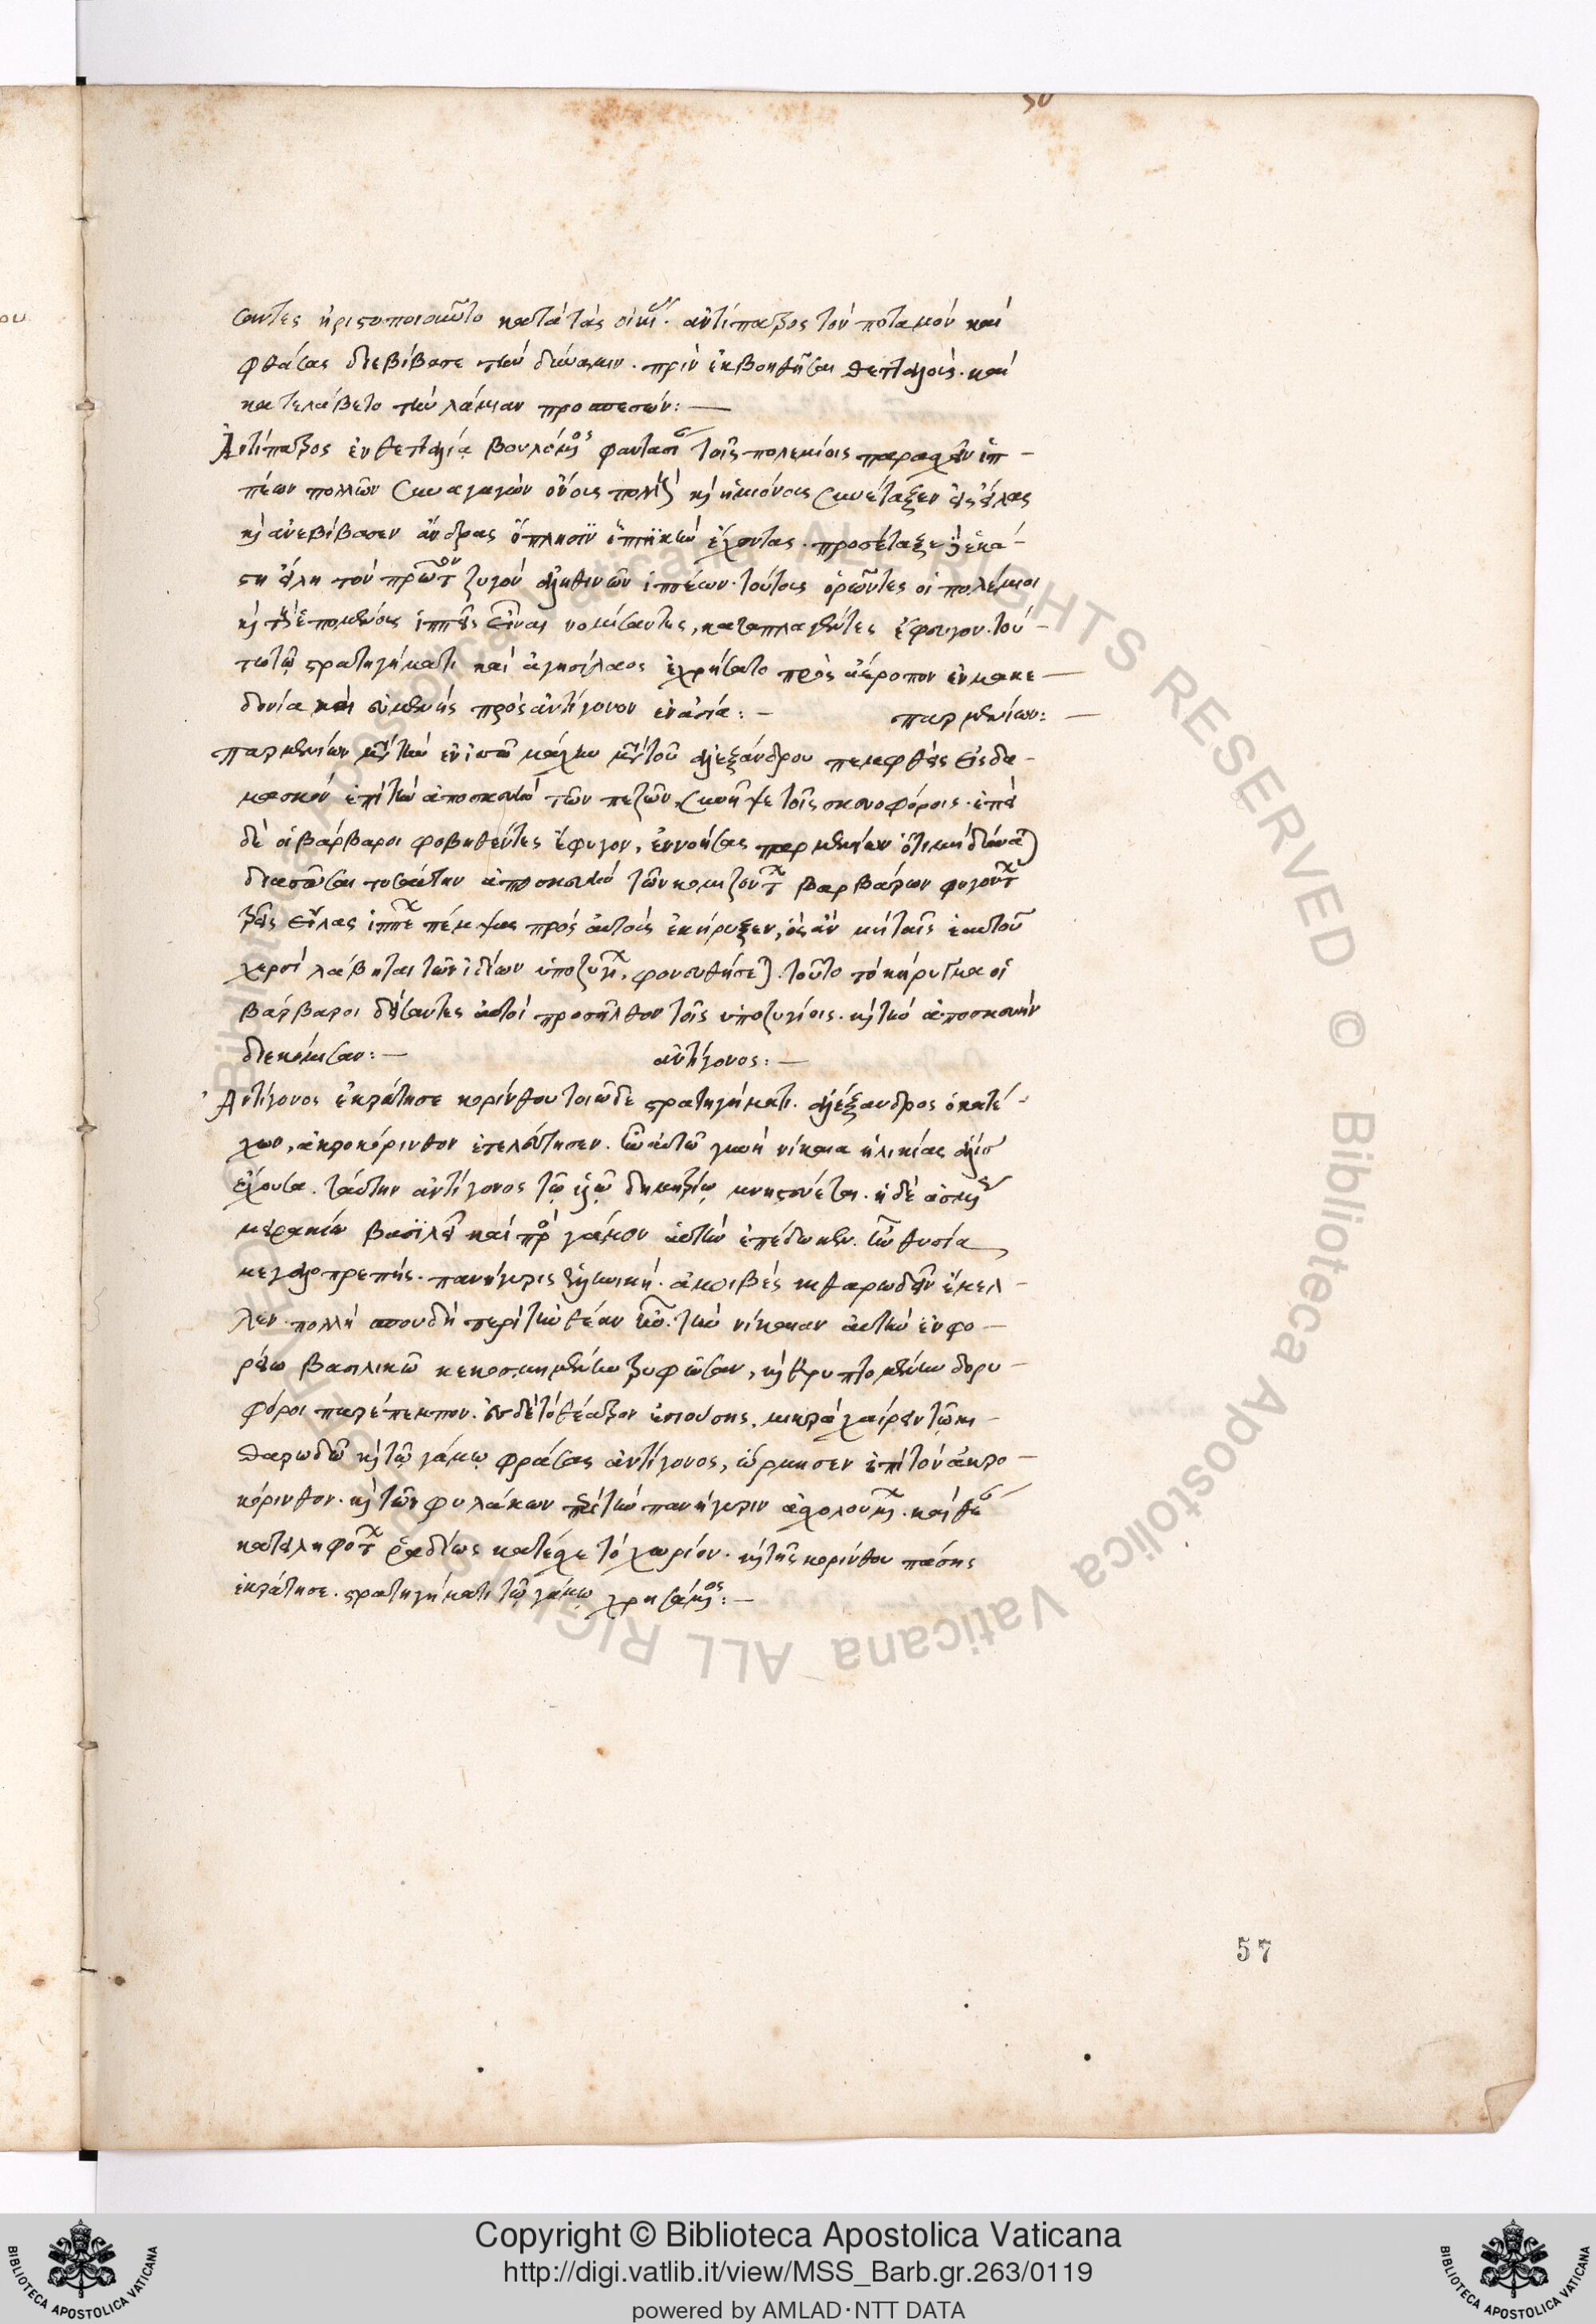 σαντες ἠριστοποιοῦντο κατὰ τὰς οἰκί. ἀντίπατρος τὸν ποταμὸν καὶ
φθάσας διεβίβασε τὴν δύναμιν. πρὶν ἐκβοηθῆσαι θετταλοὺς. καὶ
κατελάβετο τὴν λάμιαν προσπεσών: —
Ἀντίπατρος ἐν θετταλία βουλόμενος φαντασί τοῖς πολεμίοις παρασχεῖν ἱπ-
πέων πολλῶν συναγαγὼν ὄνους πολλοὺς κ(αὶ) ἡμιόνους συνέταξεν εἰς ἴλας
κ(αὶ) ἀνεβίβασεν ἄνδρας ὅπλισιν ἱππικὴν ἔχοντας. προσέταξε ἑκά-
στη ἴλη τὸν πρῶτον ζυγὸν ἀληθινῶν ἱππέων. τούτους ὁρῶντες οἱ πολέμιοι
κ(αὶ) τοὺς ἑπομένους ἱππεῖς εἶναι νομίσαντες, καταπλαγέντες ἔφυγον. τού-
τω τῷ στρατηγήματι καὶ ἀγησίλαος ἐχρήσατο πρὸς ἀέροπον ἐν μακε—
δονία καὶ εὐμενὴς πρὸς ἀντίγονον ἐν ἀσία: — παρμενίων: —
παρμενίων μετὰ τὴν ἐν ἰσσῶ μάχην μετὰ τοῦ ἀλεξάνδρου πεμφθεὶς εἰς δα-
μασκὸν ἐπὶ τὴν ἀποσκευὴν τῶν πεζῶν, συνῆψε τοῖς σκευοφόροις. ἐπεὶ
δὲ οἱ βάρβαροι φοβηθέντες ἔφυγον, ἐννοήσας παρμενίων ὅτι μὴ δύνα
διασῶσαι τοσαύτην ἀποσκευὴν τῶν κομιζοντ βαρβάρων φυγοντ
τρεῖς εἴλας ἱππε πέμψας πρὸς αὐτοὺς ἐκήρυξεν, ὃς ἂν μὴ ταῖς ἑαυτοῦ
χερσὶ λάβηται τῶν ἰδίων ὑποζυγί, φονευθήσε. τοῦτο τὸ κήρυγμα οἱ
βάρβαροι δείσαντες αὐτοὶ προσῆλθον τοῖς ὑποζυγίοις. κ(αὶ) τὴν ἀποσκευὴν
διεκόμισαν: — ἀντίγονος: —
Ἀντίγονος ἐκράτησε κορίνθου τοιῶδε στρατηγήματι. ἀλέξανδρος ὁ κατέ-
χων, ἀκροκόρινθον ἐτελεύτησεν. ἦν αὐτῶ γυνὴ νίκαια ἡλικίας ἅλις
ἔχουσα. ταύτην ἀντίγονος τῷ υἱῷ δημητρίῳ μνηστεύεται. ἡ δὲ ἀσμεν
μειρακίω βασιλεῖ καὶ πρὸς γάμον αὑτὴν ἐπέδωκεν. ἦν θυσία
μεγαλοπρεπής. πανήγυρις ἑλληνική. ἀμοιβεὺς κιθαρωδεῖν ἔμελ-
λεν. πολλὴ σπουδὴ περὶ τὴν θέαν ἦν. τὴν νίκαιαν αὐτὴν ἐν φο-
ρείω βασιλικῶ κεκοσμημένην τρυφῶσαν, κ(αὶ) θρυπτομένην δορυ-
φόροι παρέπεμπον. εἰς δὲ τὸ θέατρον εἰσιούσης, μακρὰ χαίρειν τῷ κι-
θαρωδῶ κ(αὶ) τῷ γάμῳ φράσας ἀντίγονος, ὥρμησεν ἐπὶ τὸν ἀκρο-
κόρινθον. κ(αὶ) τῶν φυλάκων περὶ τὴν πανήγυριν ἀσχολουμ. καὶ θε
κατειληφοτ ῥαδίως κατέσχε τὸ χωρίον. κ(αὶ) τῆς κορίνθου πάσης
ἐκράτησε. στρατηγήματι τῷ γάμῳ χρησάμενος: —
57
Copyright © Biblioteca Apostolica Vaticana
http://digi.vatlib.it/view/MSS_Barb.gr.263/0119
powered by AMLAD·NTT DATA
BIBLIOTECA APOSTOLICA VATICANA
BIBLIOTECA APOSTOLICA VATICANA